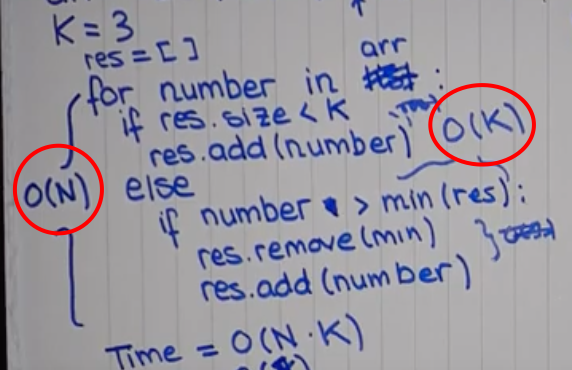 K = 3
res = [ ]
for number in arr :
if res.size < K
res.add(number)
O(K)
O(N)
else
if number > min(res):
res.remove(min)
res.add(number)
Time = O(N·K)